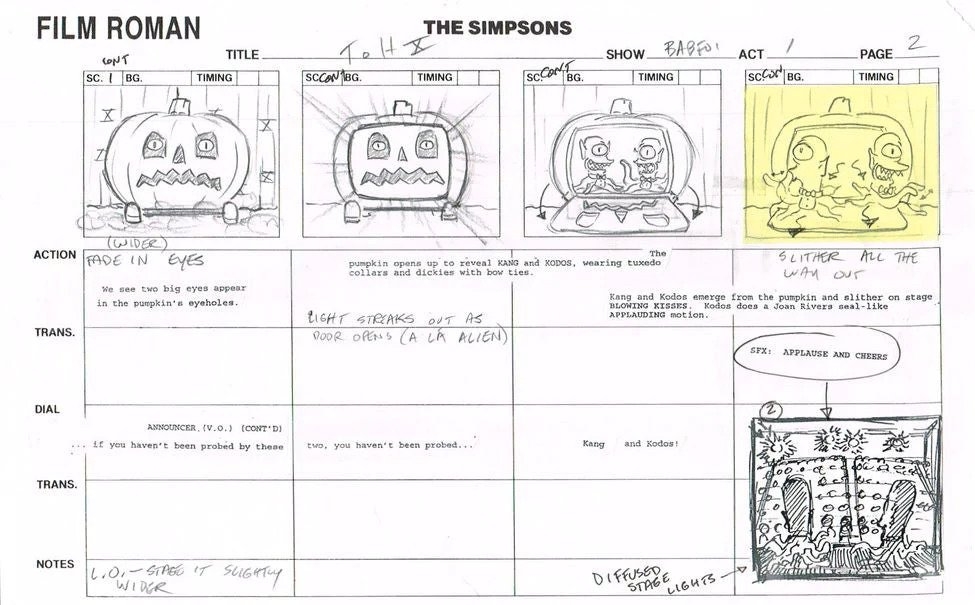 FILM ROMAN
THE SIMPSONS
TITLE T.o.H X SHOW BABF01 ACT 1 PAGE 2
CONT
SC. 1 BG. TIMING
SC. CONT BG. TIMING
SC. CONT BG. TIMING
SC. CON BG. TIMING
(WIDER)
ACTION
FADE IN EYES
We see two big eyes appear
in the pumpkin's eyeholes.
The
pumpkin opens up to reveal KANG and KODOS, wearing tuxedo
collars and dickies with bow ties.
SLITHER ALL THE
WAY OUT
Kang and Kodos emerge from the pumpkin and slither on stage
BLOWING KISSES. Kodos does a Joan Rivers seal-like
APPLAUDING motion.
TRANS.
LIGHT STREAKS OUT AS
DOOR OPENS (A LA ALIEN)
SFX: APPLAUSE AND CHEERS
DIAL
ANNOUNCER (V.O.) (CONT'D)
... if you haven't been probed by these
two, you haven't been probed...
Kang and Kodos!
2
TRANS.
NOTES
L.O. - STAGE IT SLIGHTLY
WIDER
DIFFUSED
STAGE
LIGHTS